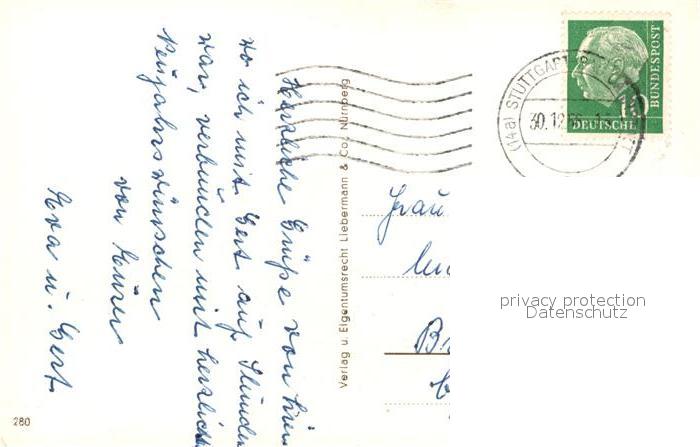 Herzliche Grüße von hier
wo ich mit Gert auf Stunden
war, verbunden mit herzlich
Neujahrswünschen
von Eurer
Eva u. Gert.
Verlag u Eigentumsrecht Liebermann & Co., Nürnberg
280
(14a) STUTTGART
30.12
DEUTSCHE
BUNDESPOST
10
Frau
privacy protection
Datenschutz